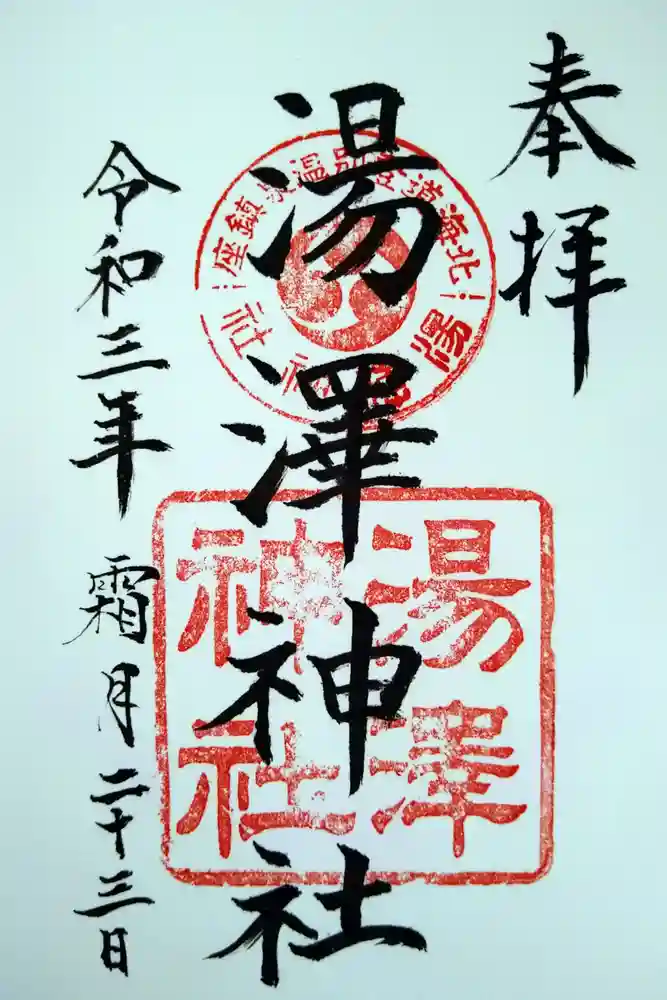 奉拝
北海道登別温泉鎮座
湯澤神社
湯澤神社
湯澤神社
令和三年 霜月 二十三日